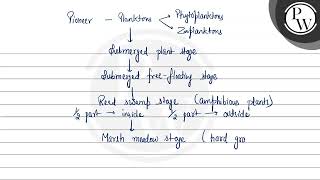 PW
Pioneer — Planktons Phytoplanktons
Zooplanktons
Submerged plant stage
Submerged free-floating stage
Reed swamp stage (amphibious plants)
1/2 part → inside 1/2 part → outside
Marsh meadow stage (hard gro